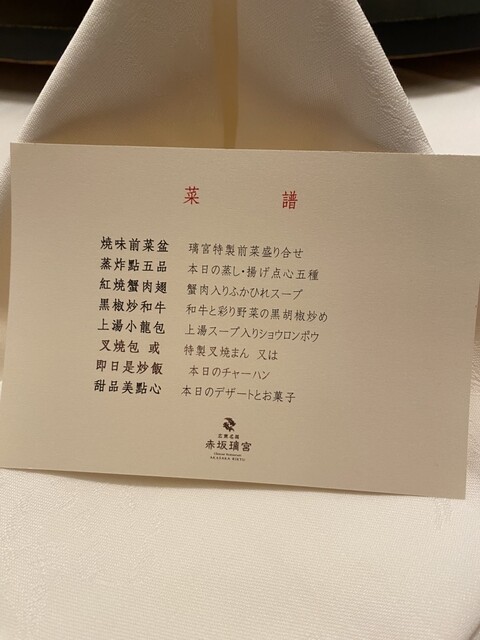 菜 譜
燒味前菜盆 璃宮特製前菜盛り合せ
蒸炸點五品 本日の蒸し・揚げ点心五種
紅燒蟹肉翅 蟹肉入りふかひれスープ
黒椒炒和牛 和牛と彩り野菜の黒胡椒炒め
上湯小龍包 上湯スープ入りショウロンポウ
叉燒包 或 特製叉焼まん 又は
即日是炒飯 本日のチャーハン
甜品美點心 本日のデザートとお菓子
広東名菜
赤坂璃宮
Chinese Restaurant